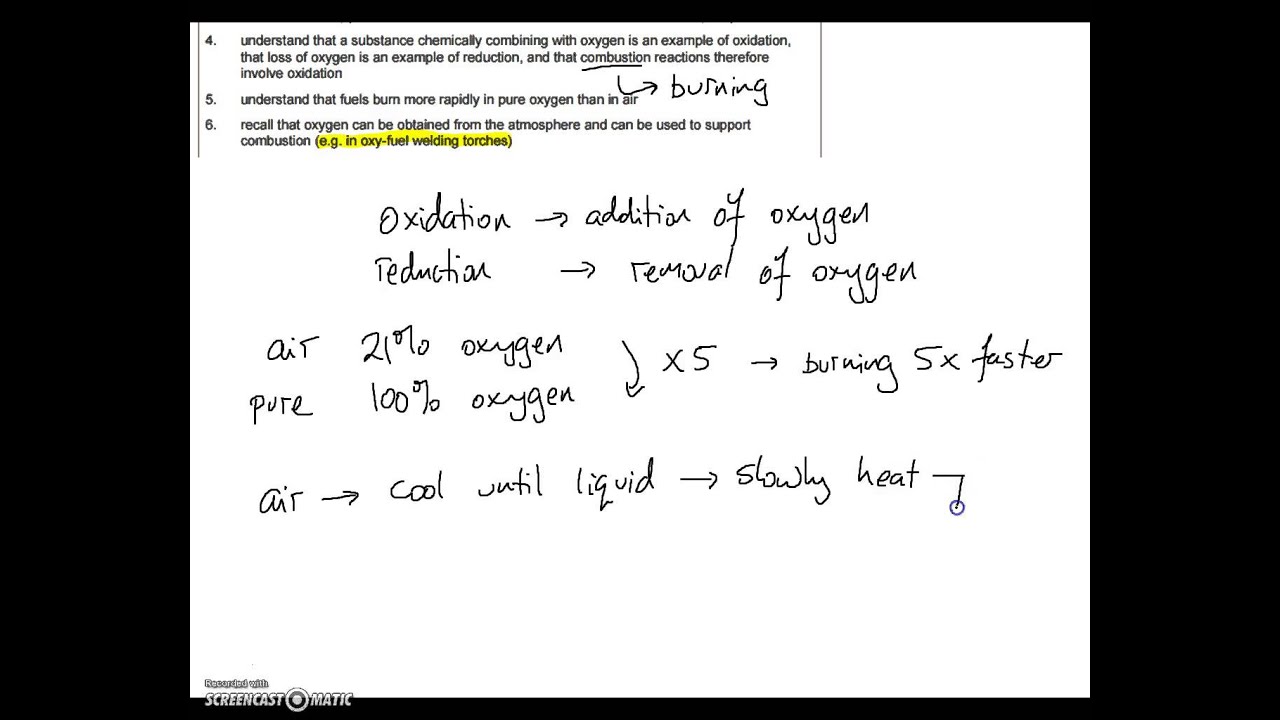 4. understand that a substance chemically combining with oxygen is an example of oxidation,
that loss of oxygen is an example of reduction, and that combustion reactions therefore
involve oxidation
burning
5. understand that fuels burn more rapidly in pure oxygen than in air
6. recall that oxygen can be obtained from the atmosphere and can be used to support
combustion (e.g. in oxy-fuel welding torches)
Oxidation → addition of oxygen
reduction → removal of oxygen
air 21% oxygen
x5 → burning 5x faster
pure 100% oxygen
air → cool until liquid → slowly heat
Recorded with
SCREENCAST MATIC